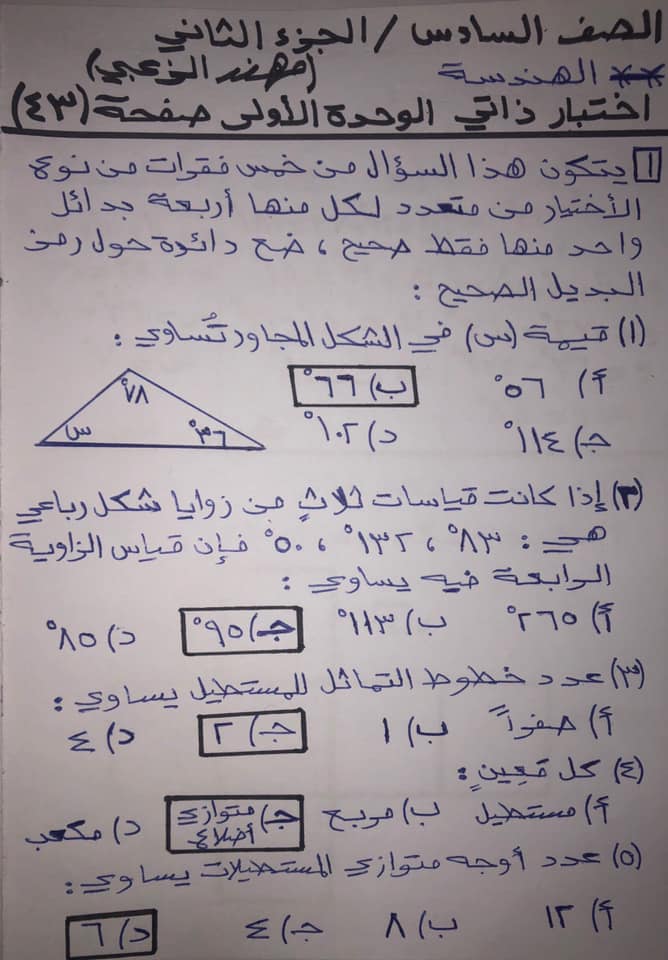 الصف السادس / الجزء الثاني
** الهندسة (مهند الزعبي)
اختبار ذاتي الوحدة الأولى صفحة (٤٣)
١ يتكون هذا السؤال من خمس فقرات من نوع
الأختيار من متعدد لكل منها أربعة بدائل
واحد منها فقط صحيح ، ضع دائرة حول رمز
البديل الصحيح :
(١) قيمة (س) في الشكل المجاور تُساوي :
أ) ٥٦° ب) ٦٦°
ج) ١١٤° د) ١٠٢°
٧٨°
س ٣٦°
(٢) إذا كانت قياسات ثلاثٍ من زوايا شكل رباعي
هي : ٨٣° ، ١٣٢° ، ٥٠° فإن قياس الزاوية
الرابعة فيه يساوي :
أ) ٢٦٥° ب) ١١٣° ج) ٩٥° د) ٨٥°
(٣) عدد خطوط التماثل للمستطيل يساوي :
أ) صفراً ب) ١ ج) ٢ د) ٤
(٤) كل مَعِينٍ :
أ) مستطيل ب) مربع ج) متوازي أضلاع د) مكعب
(٥) عدد أوجه متوازي المستطيلات يساوي :
أ) ١٢ ب) ٨ ج) ٤ د) ٦